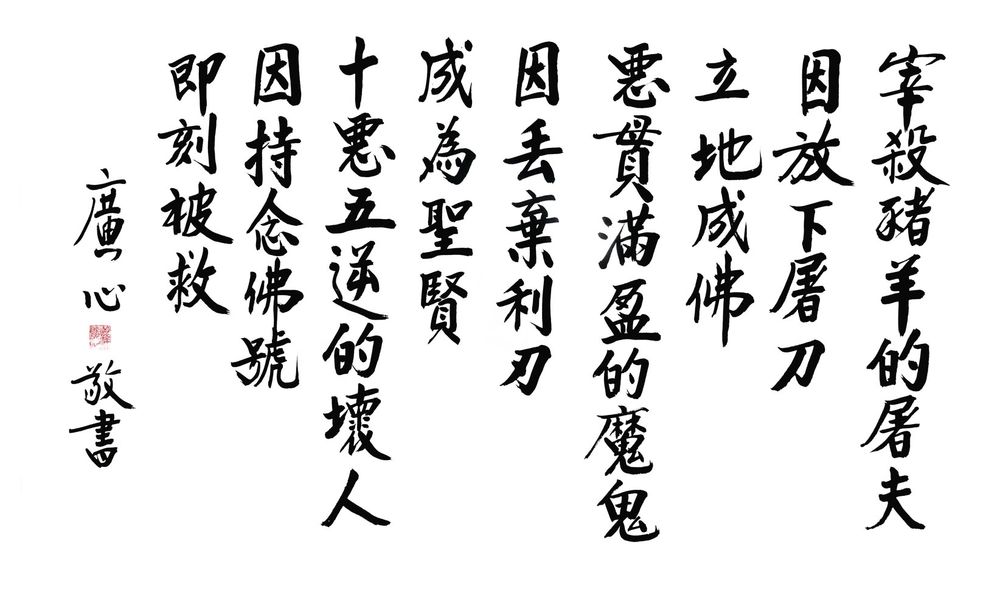 宰殺豬羊的屠夫
因放下屠刀
立地成佛
惡貫滿盈的魔鬼
因丢棄利刃
成為聖賢
十惡五逆的壞人
因持念佛號
即刻被救
廣心 敬書